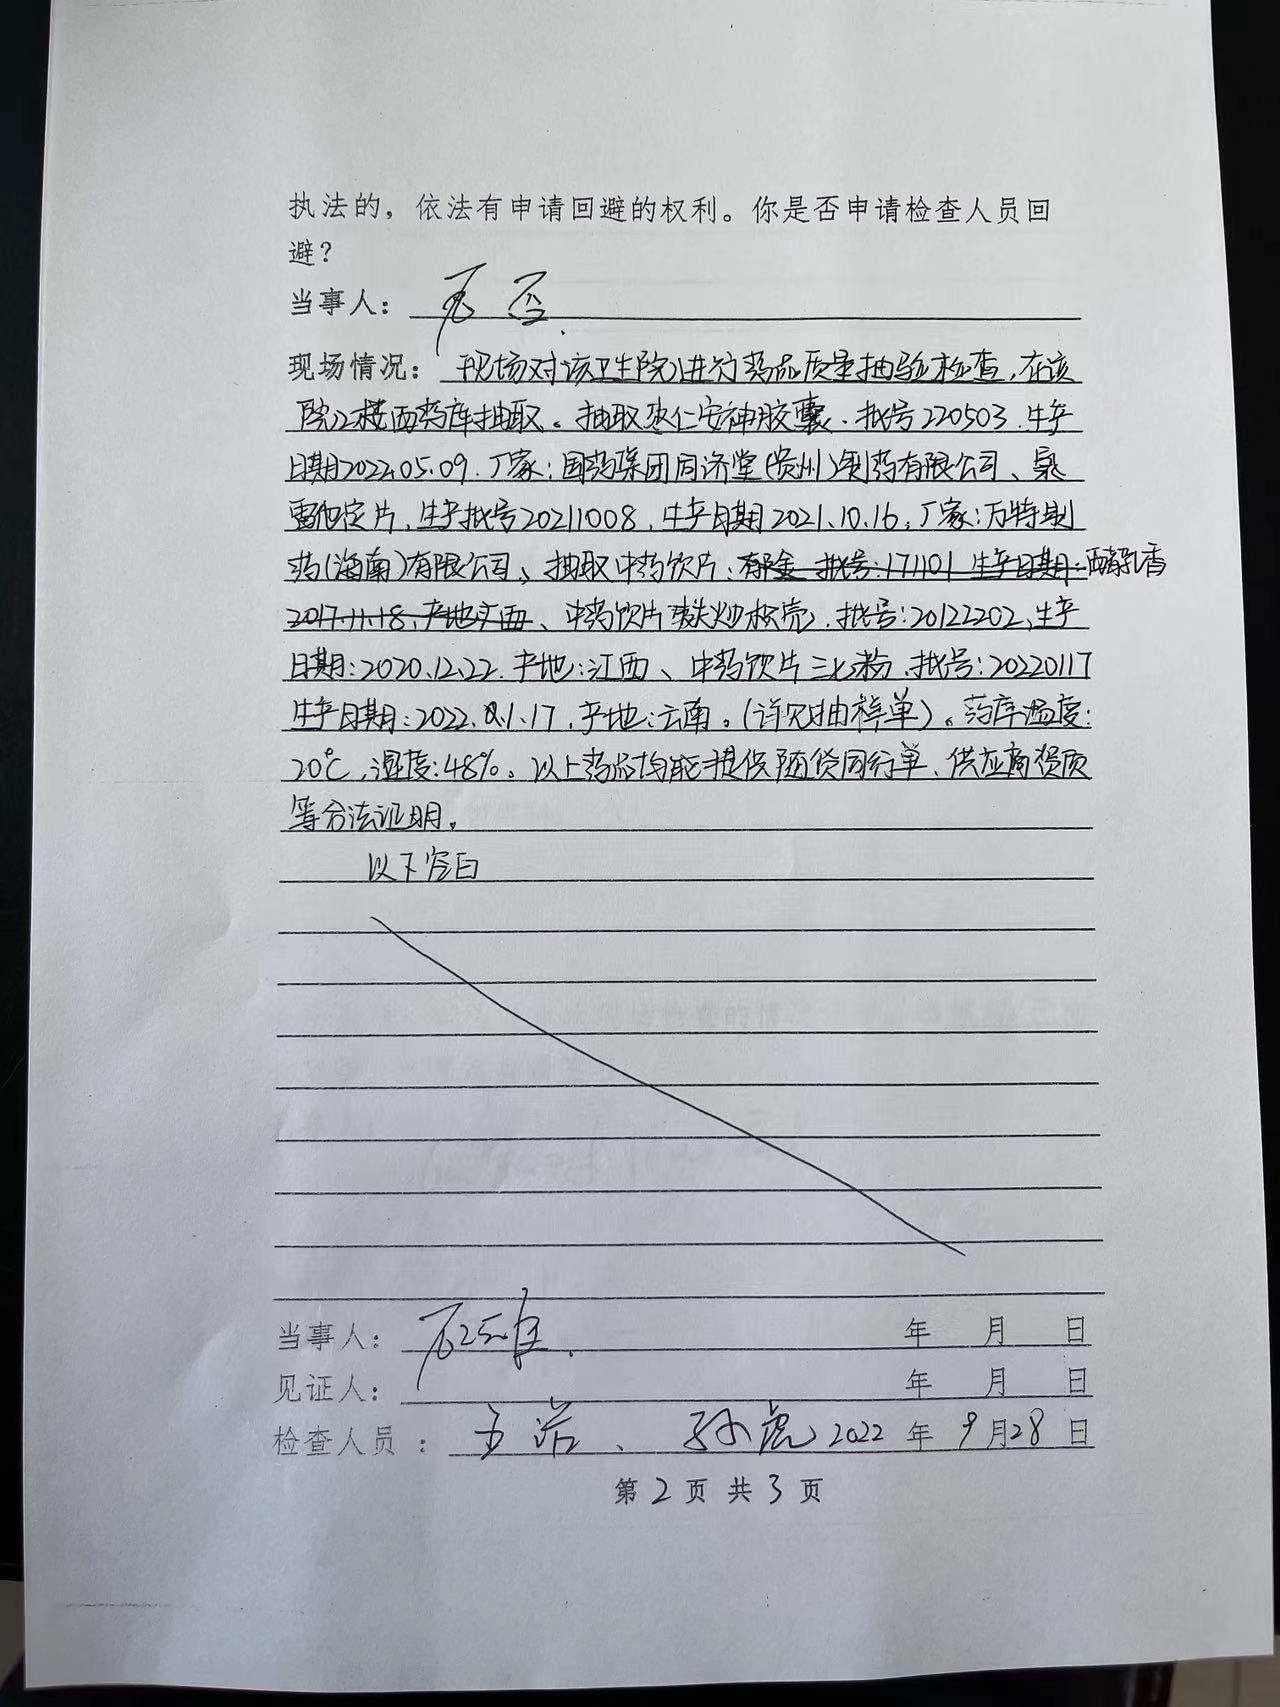 执法的，依法有申请回避的权利。你是否申请检查人员回
避？
当事人： 否.
现场情况：现场对该卫生院进行药品质量抽验检查，在该
院2楼西药库抽取。抽取枣仁安神胶囊．批号220503．生产
日期2022.05.09．厂家：国药集团同济堂（贵州）制药有限公司、氯
雷他定片，生产批号20211008，生产日期2021.10.16，厂家：万特制
药（海南）有限公司、抽取中药饮片：郁金 批号：171101 生产日期：醋乳香
2017.11.18，产地：陕西、中药饮片麸炒枳壳，批号：20122202，生产
日期：2020.12.22．产地：江西、中药饮片三七粉．批号：20220117
生产日期：2022.01.17，产地：云南。（详见抽样单）。药库温度：
20℃，湿度：48%。以上药品均能提供随货同行单、供应商资质
等合法证明。
以下空白
当事人： 年 月 日
见证人： 年 月 日
检查人员： 、孙虎 2022 年 9 月 28 日
第 2 页 共 3 页